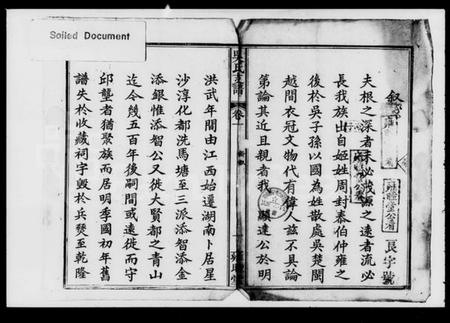 Soiled Document
叙
夫根之深者末必茂源之遠者流必
長我族出自姬姓周封泰伯仲雍之
後於吳子孫以國為姓散處吳楚閩
越間衣冠文物代有偉人茲不具論
第論其近且親者我 顯達公於明
吳氏支譜 卷一
洪武年間由江西始遷湖南卜居星
沙淳化都洗馬塘至三派添智添金
添銀惟添智公又徙大賢都之青山
迄今幾五百年後嗣間或遠徙而守
邱壟者猶聚族而居明季國初年舊
譜失於收藏祠宇毀於兵燹至乾隆
良字號